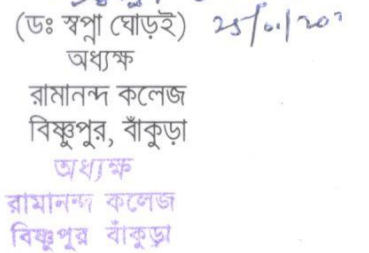 (ডঃ স্বপ্না ঘোড়ই)
অধ্যক্ষ
রামানন্দ কলেজ
বিষ্ণুপুর, বাঁকুড়া
অধ্যক্ষ
রামানন্দ কলেজ
বিষ্ণুপুর বাঁকুড়া